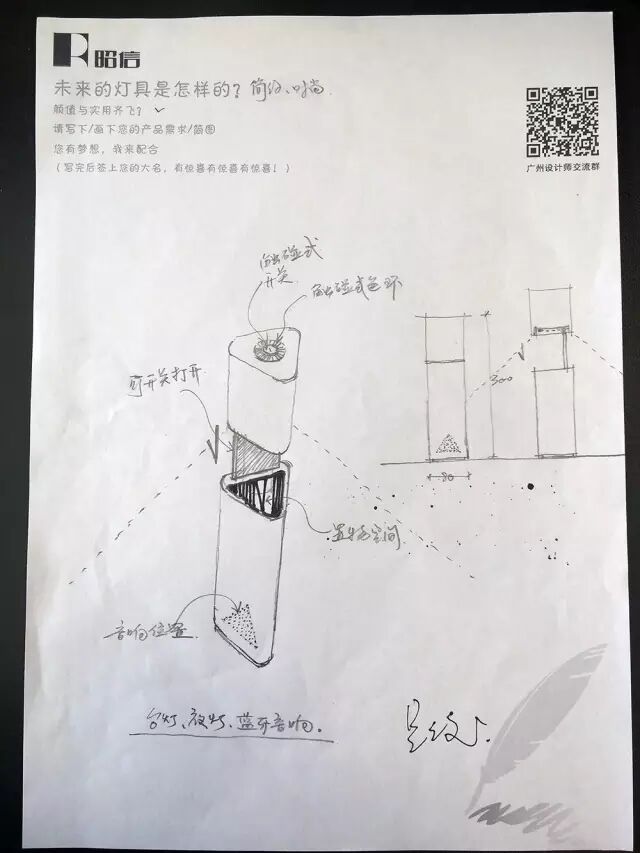 昭信
未来的灯具是怎样的？简约、时尚.
颜值与实用齐飞？ ✓
请写下/画下您的产品需求/简图
您有梦想，我来配合
（写完后签上您的大名，有惊喜有惊喜有惊喜！）
广州设计师交流群
触碰式
开关
触碰式色环
可开关打开
300
80
置物空间
音响位置
台灯、夜灯、蓝牙音响.